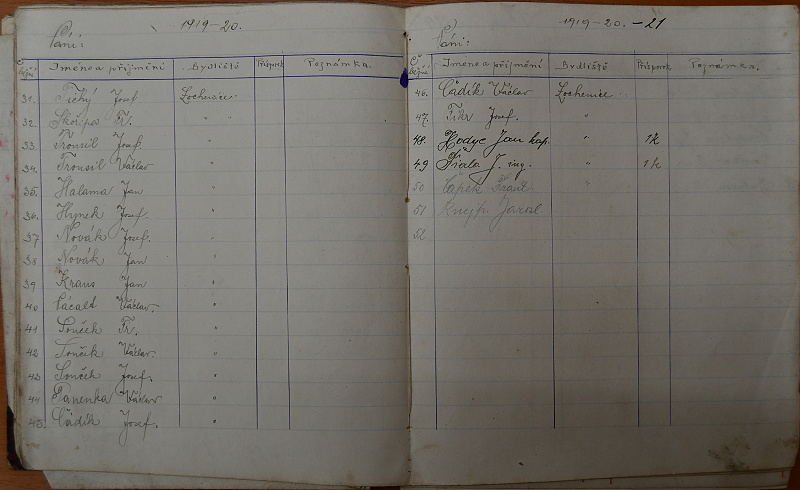 1919-20.
Páni:
Č. běžné Jméno a příjmení Bydliště Příspěvek Poznámka.
31. Tichý Josef
32. Skořepa Fr. " "
33. Trousil Josef. "
34. Trousil Václav "
35. Halama Jan "
36. Hynek Josef. "
37 Novák Josef. "
38 Novák Jan "
39 Kraus Jan "
40 Pácalt Václav. "
41 Souček Fr. "
42 Souček Václav. "
43 Souček Josef. "
44 Panenka Václav "
45. Čádík Josef. "
1919-20.-21
Páni:
Č. běžné Jméno a příjmení Bydliště Příspěvek Poznámka.
46. Čádík Václav
47. Fikr Josef. "
48. Hodyc Jan kap. " 1K
49 Fiala J. ing. " 1K
50 Čapek Frant. "
51 Knejp Jarosl
52